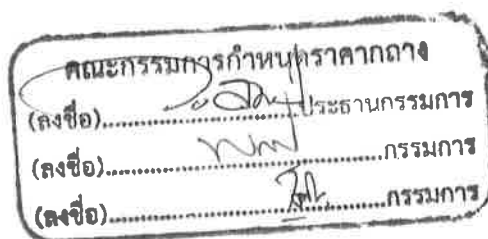 คณะกรรมการกำหนดราคากลาง
(ลงชื่อ)....................ประธานกรรมการ
(ลงชื่อ)..............................กรรมการ
(ลงชื่อ)..............................กรรมการ